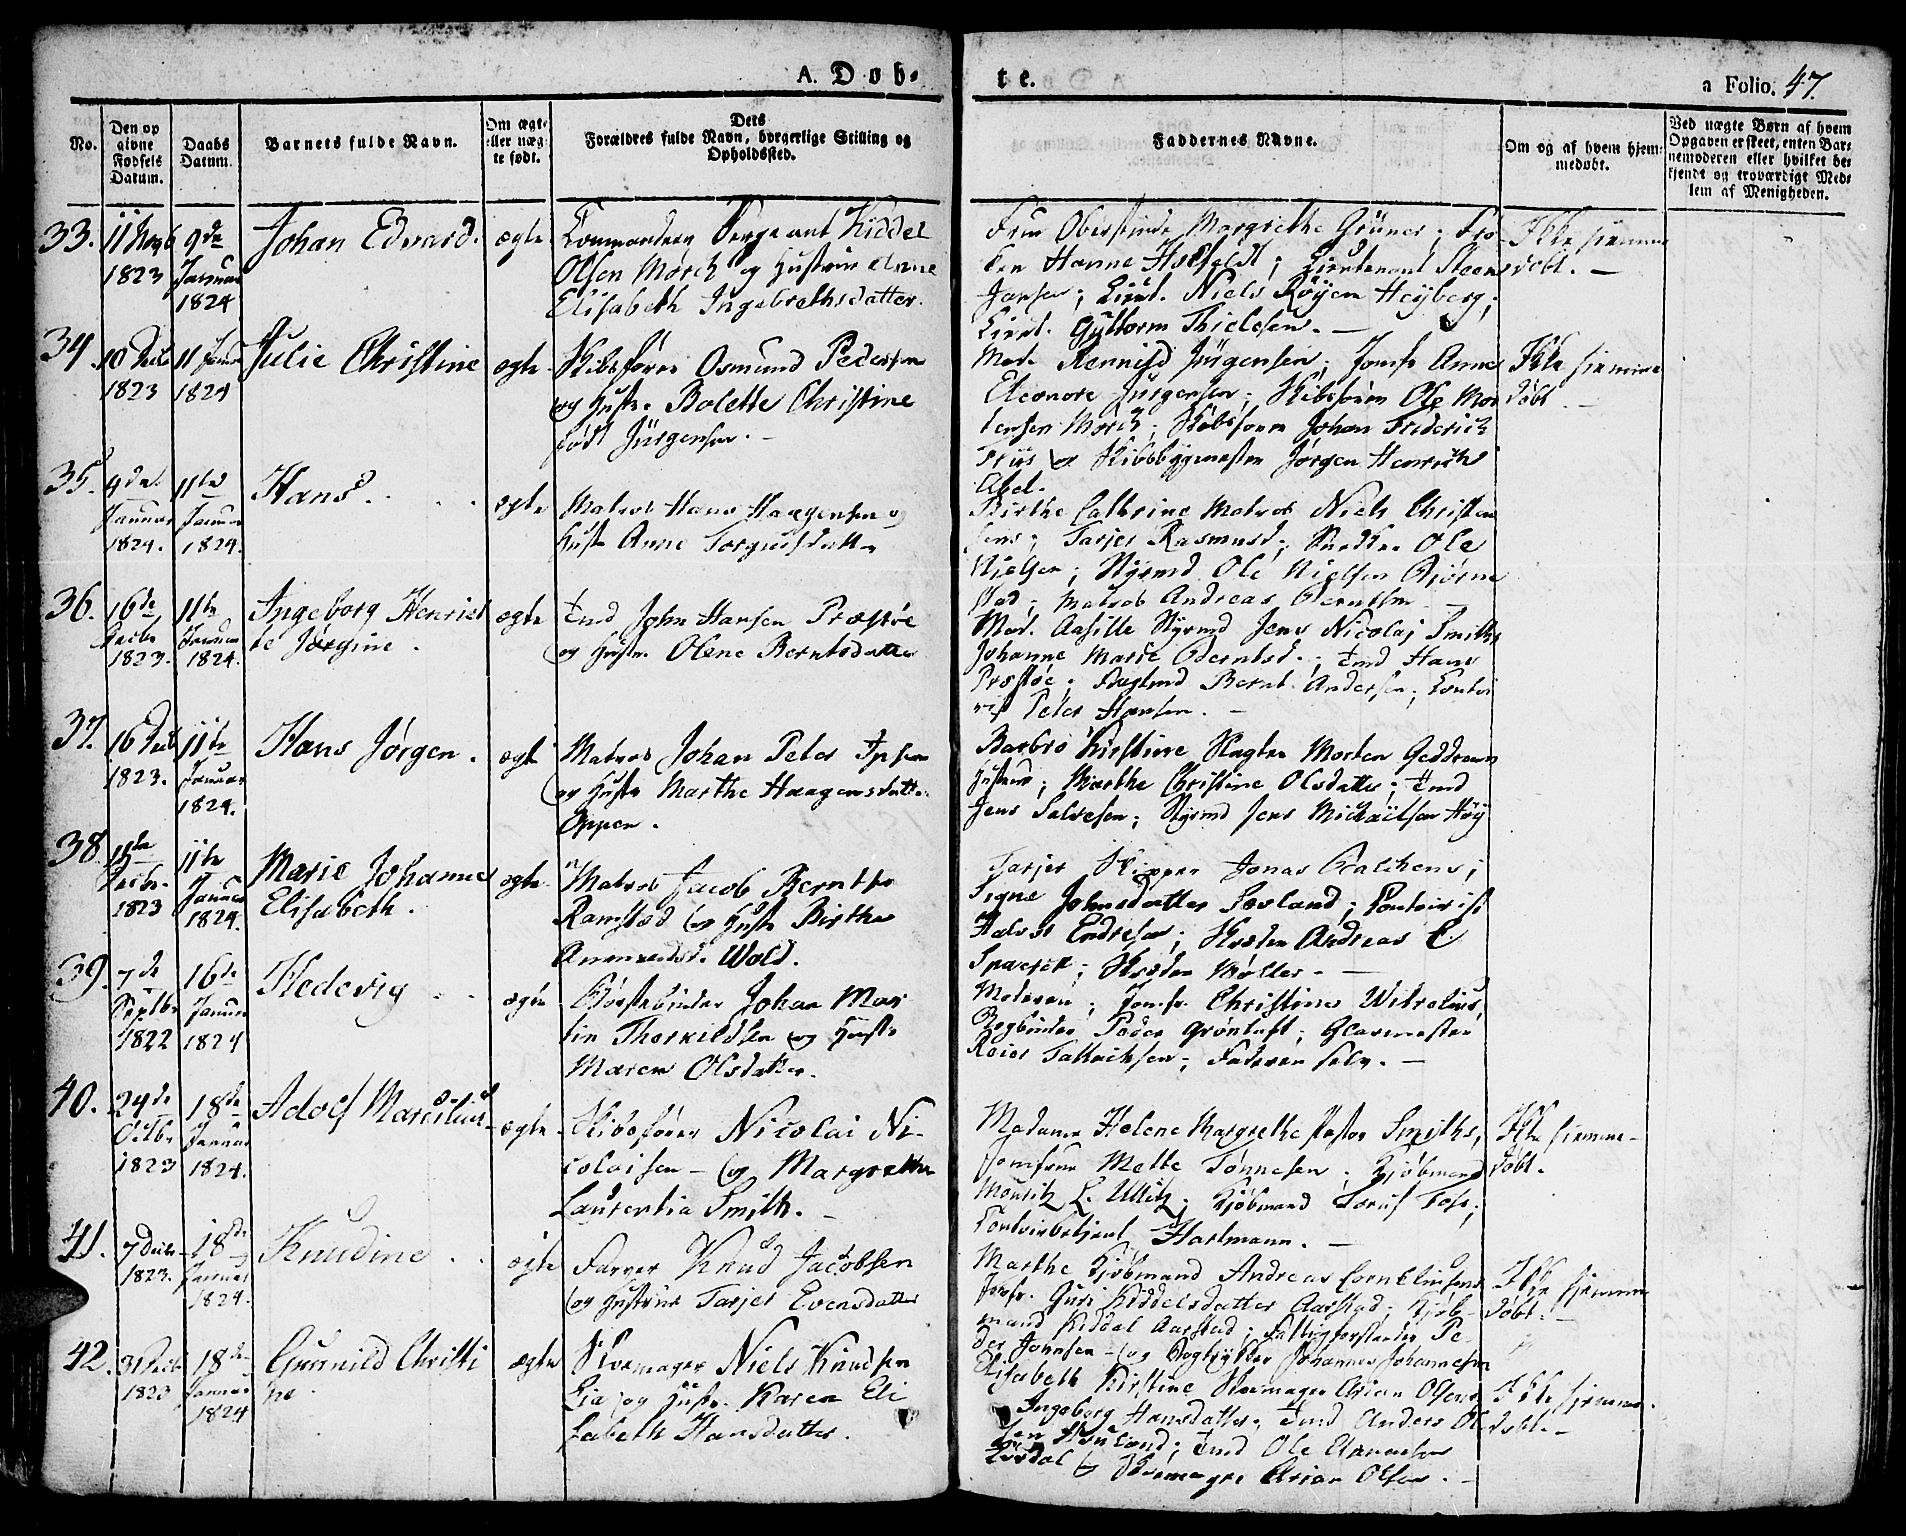 A. Døb-
te.
a Folio. 47.
No.
Den op
givne
Fødsels
Datum.
Daabs
Datum.
Barnets fulde Navn.
Om ægte
eller uæg
te født.
Dets
Forældres fulde Navn, borgerlige Stilling og
Opholdssted.
Faddernes Navne.
Om og af hvem hjem-
medøbt.
Ved uægte Børn af hvem
Opgaven er skeet, enten Bar-
nemoderen eller hvilket be-
kjendt og troværdigt Med-
lem af Menigheden.
33.
11 Novb
1823
9de
Januar
1824
Johan Edvard.
ægte
Commandeer Sergeant Kiddel
Olsen Mörch og Hustrue Anne
Elisabeth Ingebrethsdatter.
Frue Oberstinde Margrethe Grüner; Frø-
ken Hanne ; Lieutenant Steens
Jansen; Lieut. Niels Röyem Heyberg;
Lieut. Guttorm Thielesen. —
Ikke hjemme
døbt. —
34.
10 Decb
1823
11 Janu
1824
Julie Christine
ægte
Skibsfører Osmund Pedersen
og Hustr. Bolette Christine
født Jürgensen. —
Mad. Jürgensen; Jomfr Anne
Eleonore Jürgensen; Skibsfører Ole Mor
tensen Mörch; Skibsfører Johan Friderich
Friis og Skibsbygmester Jørgen Henrich
Abel.
Ikke hjemme
døbt —
35.
4de
Januar
1824.
11te
Januar
1824.
Hans.
ægte
Matros Hans Haagensen og
Hustr Anne Torgiusdatter
Birthe Cathrine Matros Niels Christen
sens; Tarjer Rasmusd; Snedker Ole
Nielsen; Styrmd Ole Nielsen Bjørne
stad; Matros Andreas Berntsen
36.
16de
Decbr
1823.
11te
Januar
1824.
Ingeborg Henriet
te Jørgine.
ægte
Tmd John Hansen Præstøe
og Hustr. Olene Berntsdatter
Mad. Aasille Styrmd Jens Nicolaj Smiths
Johanne Marie Berntsd.; Tmd Hans
Præstøe; Bernt Andersen; Contoi
rist Peter Hansen. —
37.
16 Decb
1823.
11te
Januar
1824.
Hans Jørgen.
ægte
Matros Johan Peter Ipsen
og Hustr Marthe Haagensdatter
Oppen.
Barbro Kirstine Slagter Morten Geddesens
Hustrue; Marthe Christine Olsdatter; Tmd
Jens Salvesen; Styrmd Jens Michaelsen Høy
38.
11te
Decbr.
1823
11te
Januar
1824.
Marie Johanne
Elisabeth.
ægte
Matros Jacob Berntsen
Ramstad og Hustr Birthe
Wold.
Tarjer Skipper Jonas Balchens;
Signe Johnsdatter Søvland; Contoirist
Halvor Endresen; Skræder Andreas C
; Skræder Møller. —
39.
7de
Septbr
1822
16de
Januar
1824
Hedevig
ægte
Børstebinder Johan Mar
tin Thorkildsen og Hustr
Maren Olsdatter.
Moderen; Jomfr Christine
Bogbinder Peder Grøntuft; Glarmester
Reier Tallachsen; Faderen selv. —
40.
24de
Octbr
1823
18de
Januar
1824.
Adolf Marcilius
ægte
Skibsfører Nicolai Ni-
colaisen — og Margrethe
Laurentia Smith. —
Madame Helene Margrethe Pastor Smiths;
Jomfrue Mette Tønnesen; Kjøbmand
Mouritz C. Ullitz; Kjøbmand Foss;
Contoirbetjent Hartmann. —
Ikke hjemme-
døbt.
41.
7 Decbr
1823.
18de
Januar
1824.
Knudine
ægte
Farver Knud Jacobsen
og Hustrue Tarjer Evensdatter
Marthe Kjøbmand Andreas Corneliusens
Jomfr. Guri Kiddelsdatter Aarstad; Kjøb-
mand Kiddel Aarstad; Fattigforstander Pe-
der Johnsen — og Bogtrykker Johannes Johannesen
Ikke hjemme
døbt. —
42.
31 Decb
1823
18de
Januar
1824
Gunnild Christi
ne.
ægte
Skoemager Niels Knudsen
Lia og Hustr. Karen Eli
sabeth Hansdatter.
Elisabeth Kirstine Skoemager Arian Olsens
Ingeborg Hansdatter; Tmd Anders Ol
sen ; Tmd Ole Aanensen
og Skoemager Arian Olsen. —
Ikke hjemme-
døbt. —